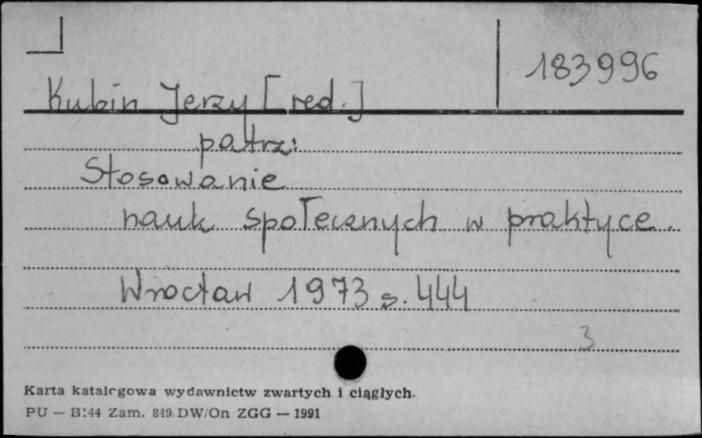 183996
Kubin Jerzy [red.]
patrz:
Stosowanie
nauk społecznych w praktyce.
Wrocław 1973 s. 444
3
Karta katalogowa wydawnictw zwartych i ciągłych.
PU — B:44 Zam. 849.DW/On ZGG — 1991